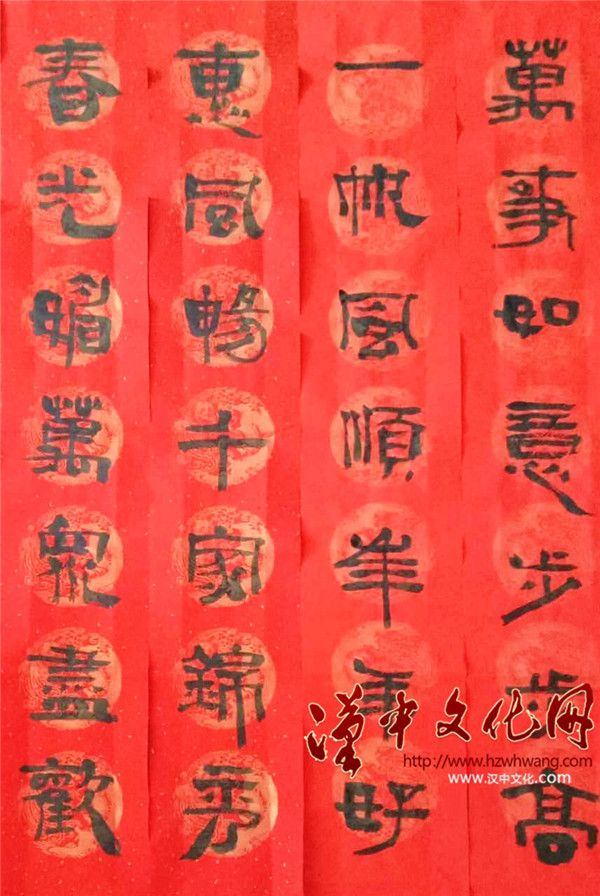 萬事如意步步高
一帆風順年年好
惠風暢千家錦秀
春光媚萬眾盡歡
漢中文化网
http://www.hzwhwang.com
www.汉中文化.com